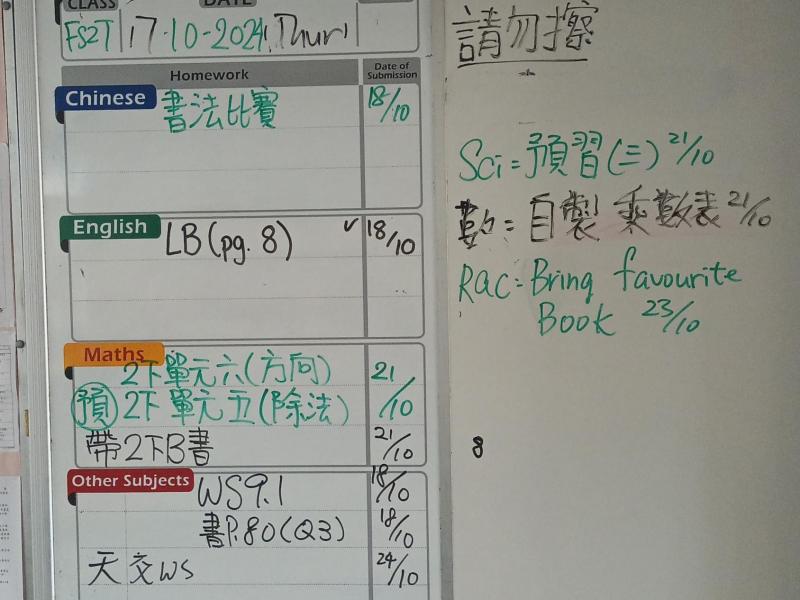 CLASS DATE
FS2T 17-10-2024 Thur
Homework Date of Submission
Chinese 書法比賽 18/10
English LB (pg. 8) ✓ 18/10
Maths
2下單元六(方向) 21/10
預 2下單元五(除法)
帶2下B書 21/10
Other Subjects WS9.1 18/10
書P.80(Q3) 18/10
天交WS 24/10
請勿擦
Sci = 預習(三) 21/10
數 = 自製乘數表 21/10
RaC = Bring favourite
Book 23/10
8